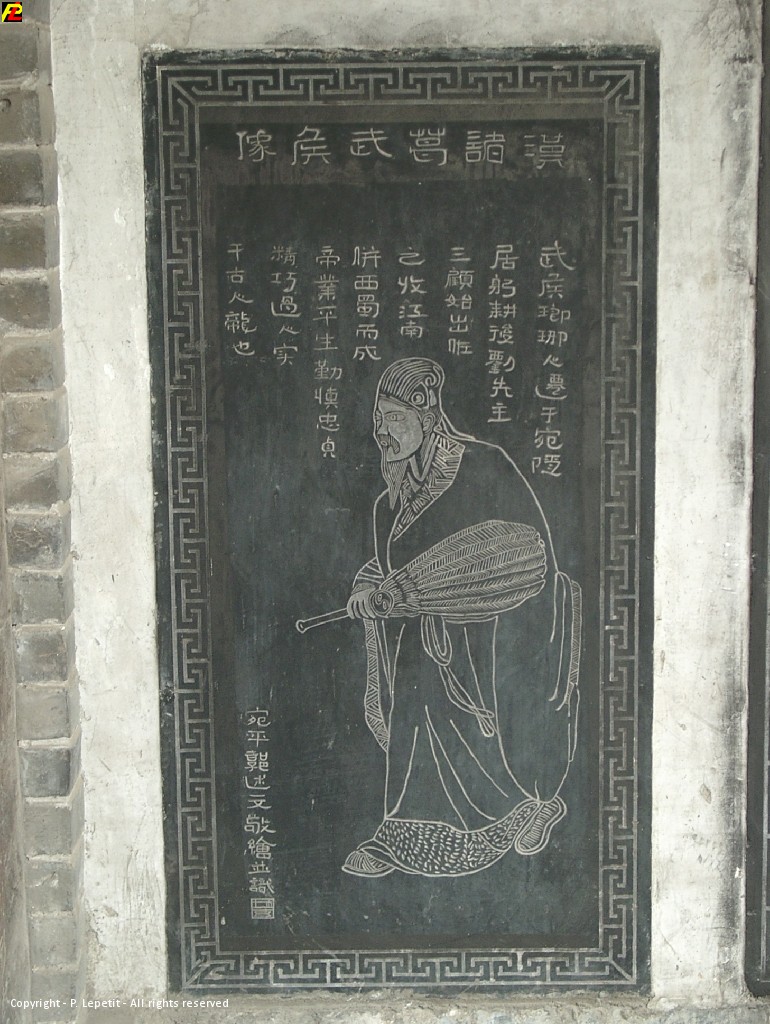 漢諸葛武侯像
武侯瑯琊人遷于宛隱
居躬耕後劉先主
三顧始出佐
之收江南
併西蜀而成
帝業平生勤慎忠貞
精巧過人实
千古人龍也
宛平郭述文敬繪並識
Copyright - P. Lepetit - All rights reserved